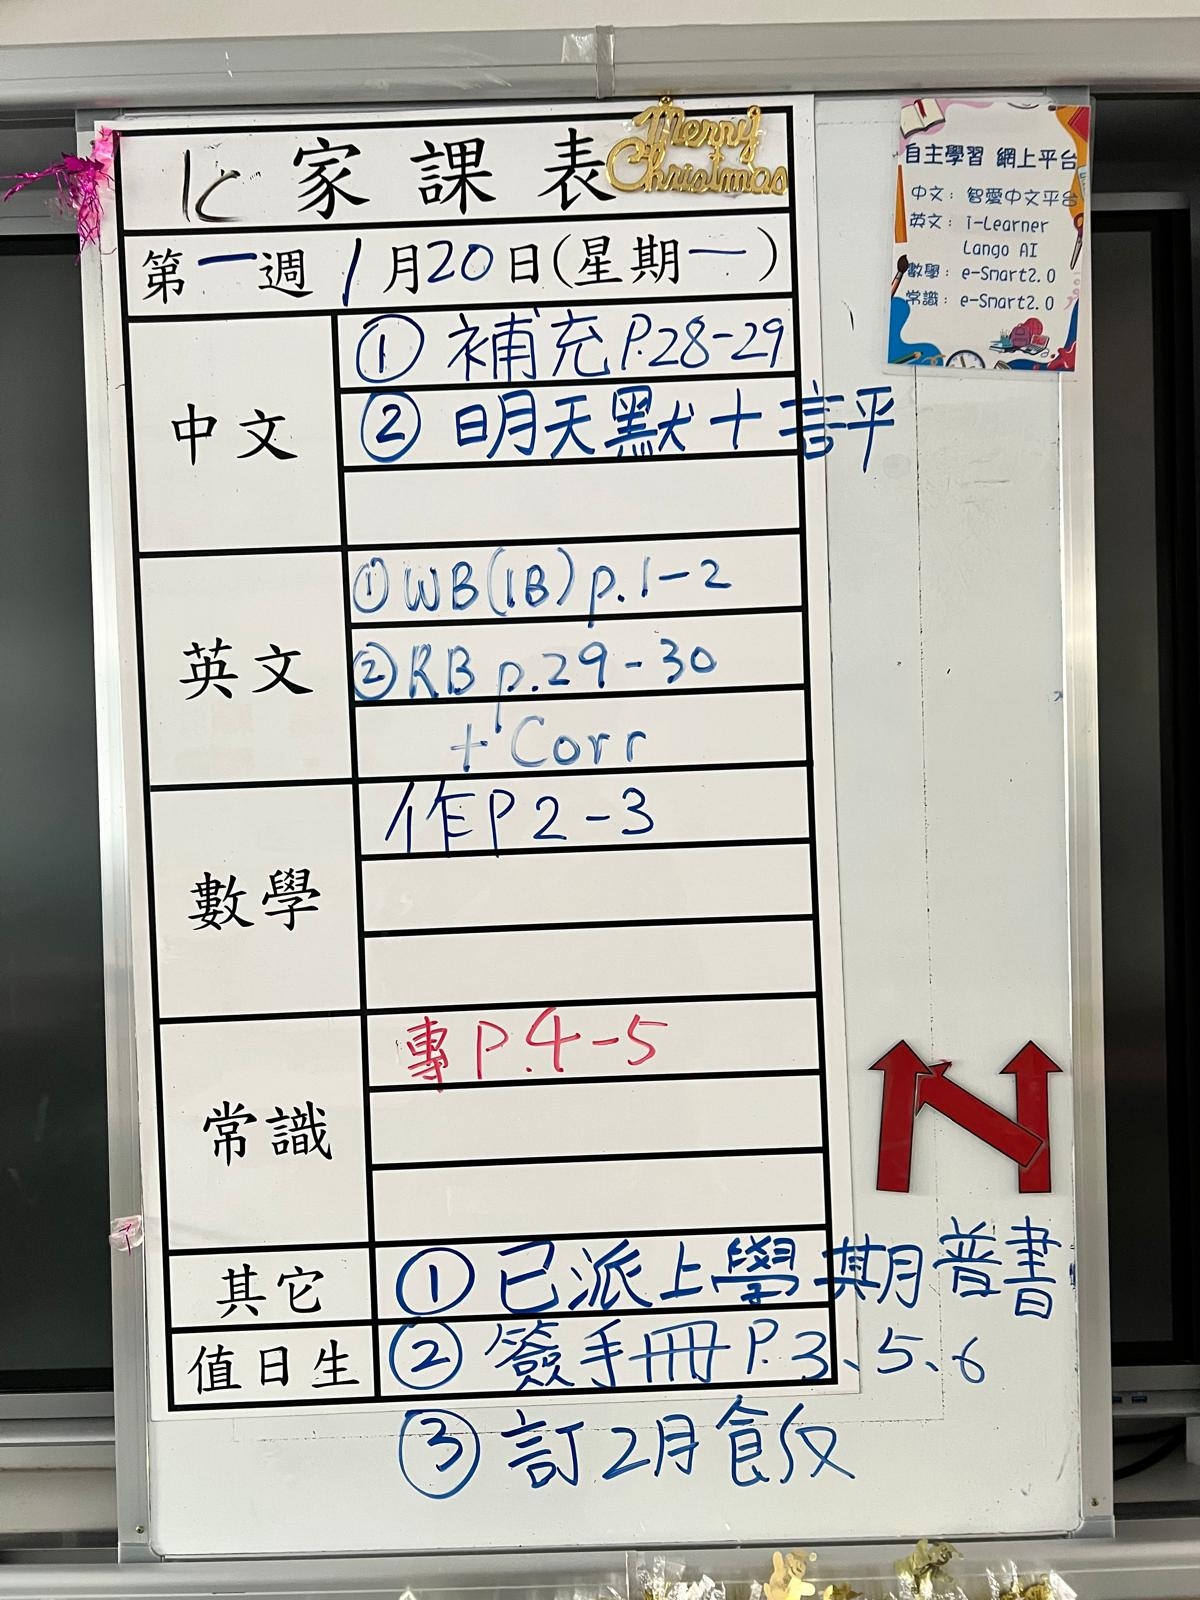 1C 家課表
Merry
Christmas
第一週 1月20日(星期一)
中文
① 補充 P.28-29
② 明天默+評
英文
① WB(1B) p.1-2
② RB p.29-30
+ Corr
數學
作 P 2-3
常識
專 P.4-5
其它
① 已派上學期普書
值日生
② 簽手冊 P.3、5、6
③ 訂2月飯
自主學習 網上平台
中文: 智愛中文平台
英文: i-Learner
Lango AI
數學: e-Smart2.0
常識: e-Smart2.0